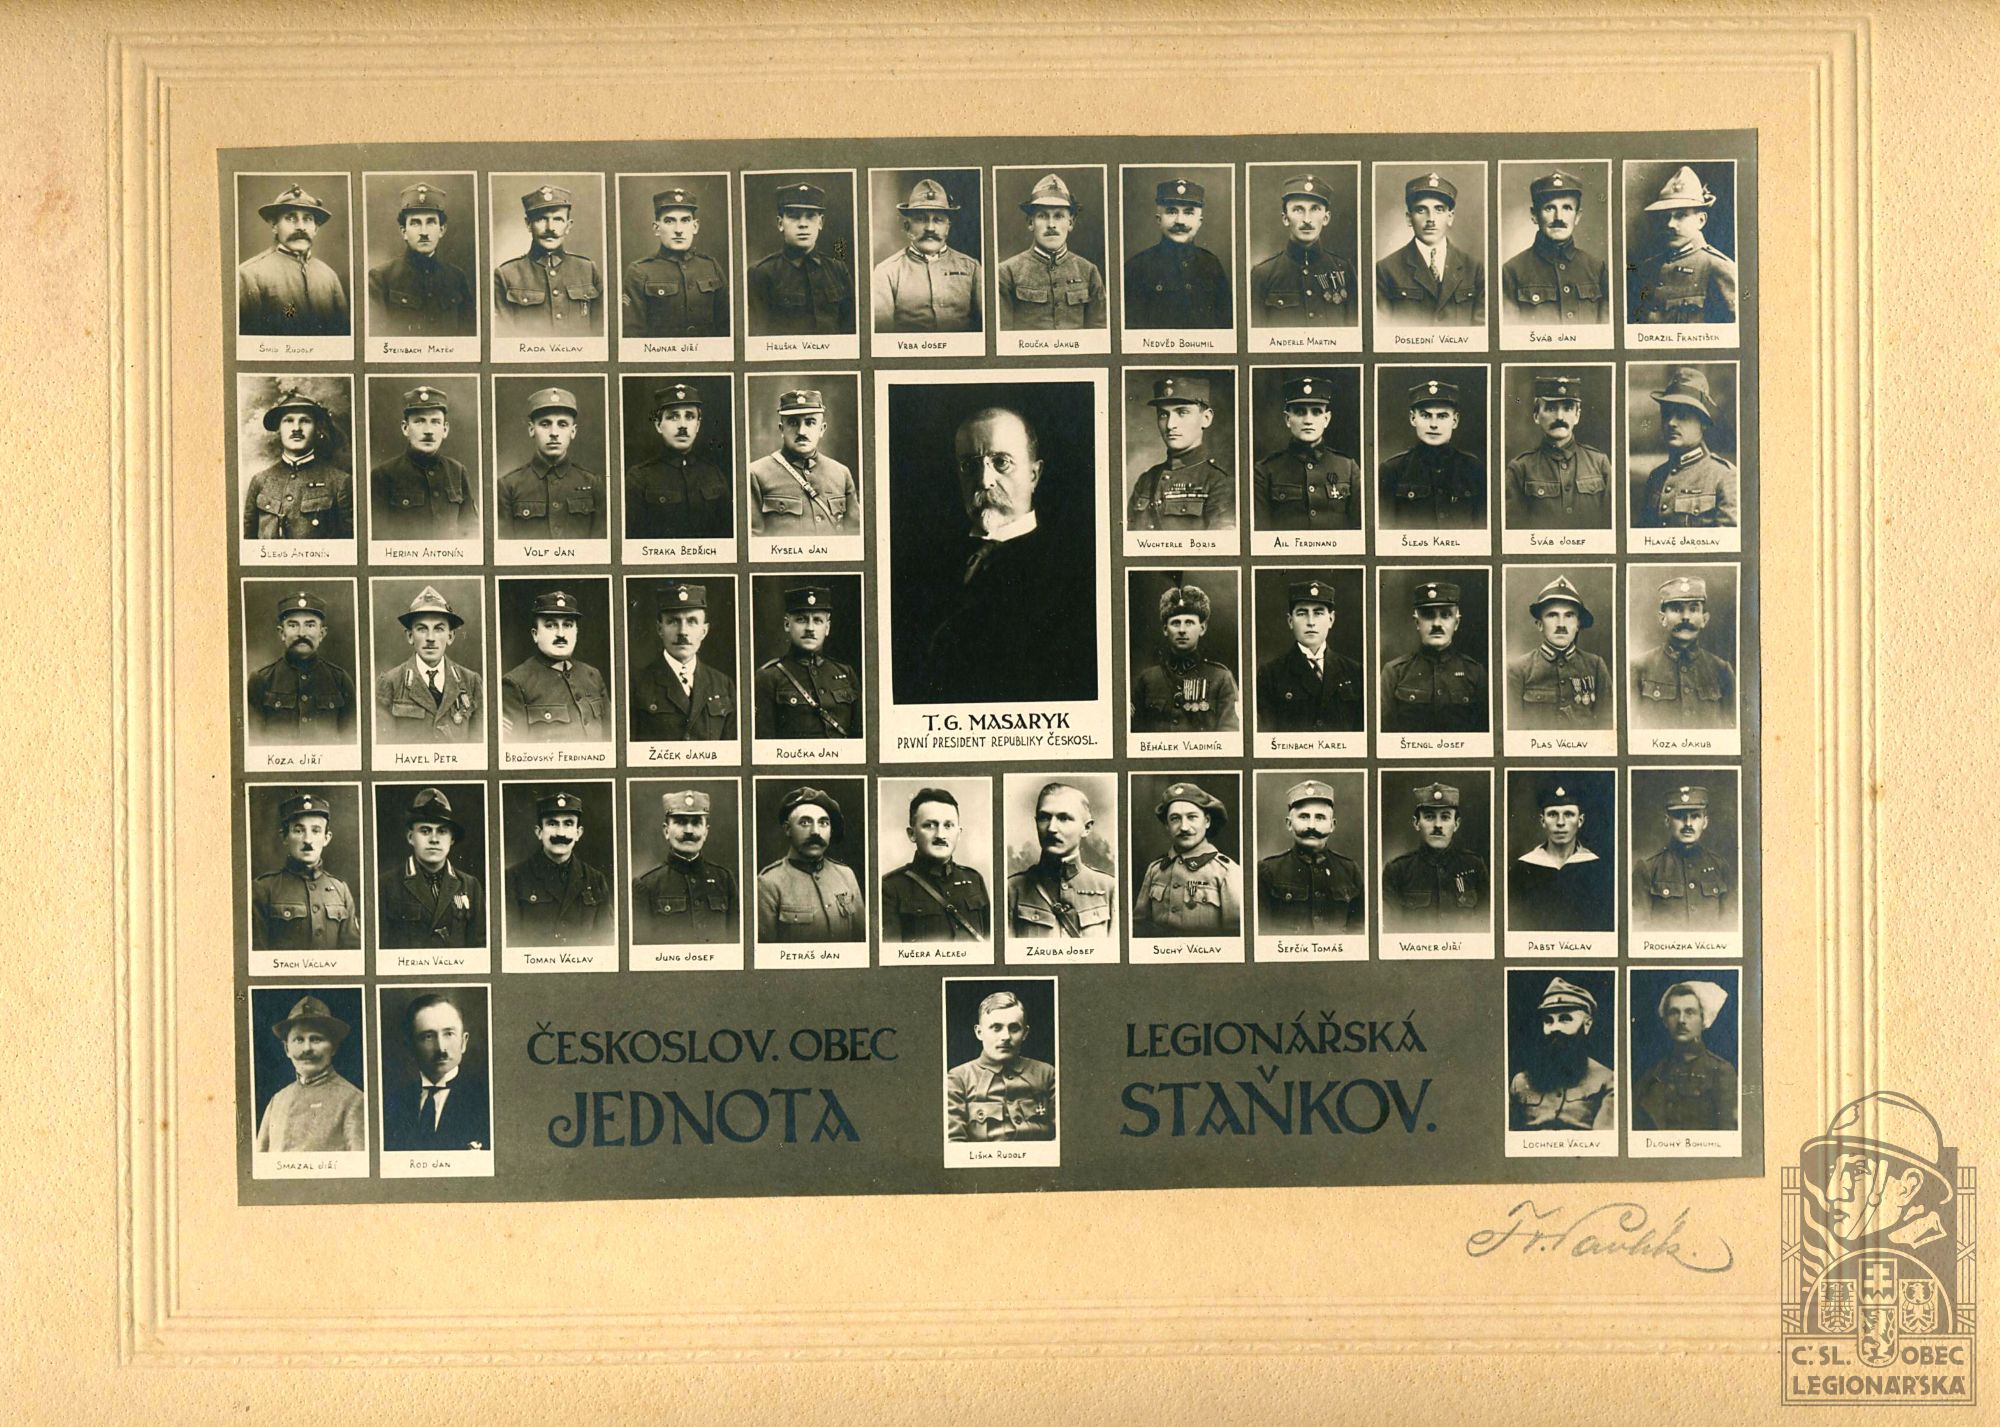 Šmíd Rudolf
Šteinbach Matěj
Rada Václav
Najnar Jiří
Hruška Václav
Vrba Josef
Roučka Jakub
Nedvěd Bohumil
Anderle Martin
Poslední Václav
Šváb Jan
Dorazil František
Šlejs Antonín
Herian Antonín
Volf Jan
Straka Bedřich
Kysela Jan
Wuchterle Boris
Ail Ferdinand
Šlejs Karel
Šváb Josef
Hlaváč Jaroslav
T. G. MASARYK
PRVNÍ PRESIDENT REPUBLIKY ČESKOSL.
Koza Jiří
Havel Petr
Brožovský Ferdinand
Žáček Jakub
Roučka Jan
Běhálek Vladimír
Šteinbach Karel
Štengl Josef
Plas Václav
Koza Jakub
Stach Václav
Herian Václav
Toman Václav
Jung Josef
Petráš Jan
Kučera Alexej
Záruba Josef
Suchý Václav
Šefčík Tomáš
Wagner Jiří
Pabst Václav
Procházka Václav
Smazal Jiří
Rod Jan
ČESKOSLOV. OBEC
LEGIONÁŘSKÁ
JEDNOTA
STAŇKOV.
Liška Rudolf
Lochner Václav
Dlouhý Bohumil
Fr. Pavlík.
Č. SL. OBEC
LEGIONÁŘSKÁ